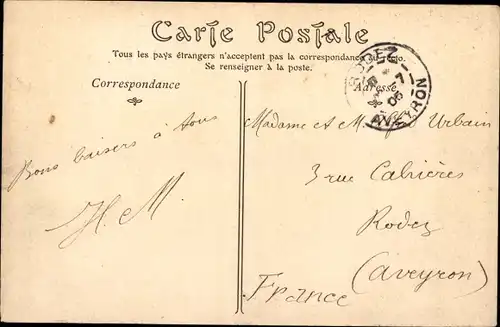 Carte Postale
Tous les pays étrangers n'acceptent pas la correspondance au recto.
Se renseigner à la poste.
Correspondance
Adresse
RODEZ
7
05
AVEYRON
Madame et M. Urbain
3 rue Cabrières
Rodez
(Aveyron)
France
Bons baisers à tous
H. M.